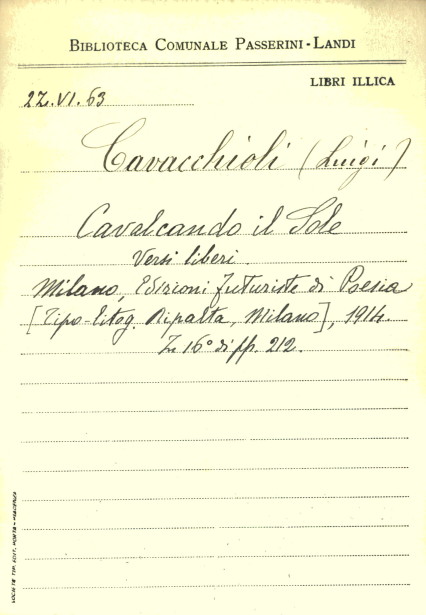 BIBLIOTECA COMUNALE PASSERINI-LANDI
LIBRI ILLICA
2Z.VI.63
Cavacchioli (Luigi)
Cavalcando il Sole
Versi liberi.
Milano, Edizioni futuriste di Poesia
[Tipo-litog. Ripalta, Milano], 1914.
Z 16° di pp. 212.